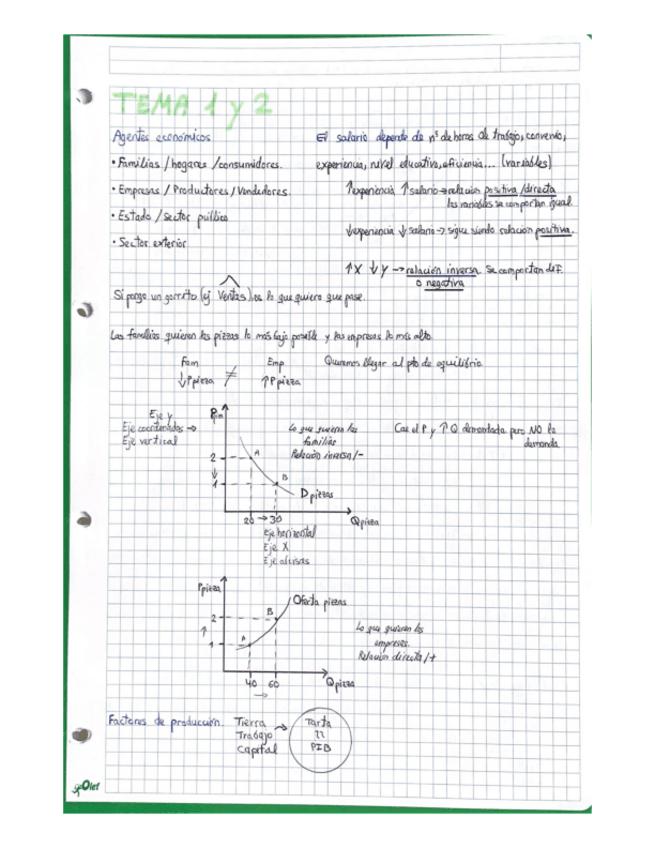 TEMA 1 y 2
Agentes económicos
• Familias / hogares / consumidores.
• Empresas / Productores / Vendedores
• Estado / Sector público
• Sector exterior
El salario depende de nº de horas de trabajo, convenio,
experiencia, nivel educativo, eficiencia... (variables)
↑experiencia ↑salario → relación positiva / directa
las variables se comportan igual
↓experiencia ↓ salario → sigue siendo relación positiva.
↑X ↓Y → relación inversa. Se comportan dif.
o negativa
Si pongo un gorrito (ej Ventas) es lo que quiero que pase.
Las familias quieren las pizzas lo más bajo posible y las empresas lo más alto.
Fam ≠ Emp
↓P pizza ↑P pizza
Queremos llegar al pto de equilibrio
Eje y
Eje coordenadas →
Eje vertical
2
↓
1
A
B
D pizzas
20 → 30
Q pizza
Eje horizontal
Eje X
Eje abcisas
Lo que quieren las
familias
Relación inversa / -
Cae el P y ↑ Q demandada pero NO la
demanda
P pizza
2
↑
1
A
B
Oferta pizzas
40 60
→
Q pizza
Lo que quieren las
empresas.
Relación directa / +
Factores de producción. Tierra
Trabajo
Capital
→
Tarta
PIB
Olef